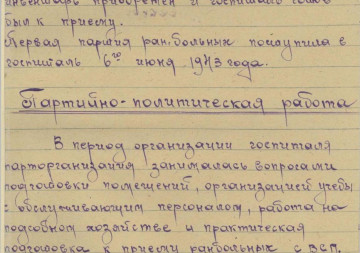 инвентарь приобретен и госпиталь готов
был к приему.
Первая партия ран.больных поступила в
госпиталь 6го июня 1943 года.
Партийно-политическая работа
В период организации госпиталя
парторганизация занималась вопросами
подготовки помещений, организацией учебы
с обслуживающим персоналом, работа на
подсобном хозяйстве и практическая
подготовка к приему ранбольных с ВСП.